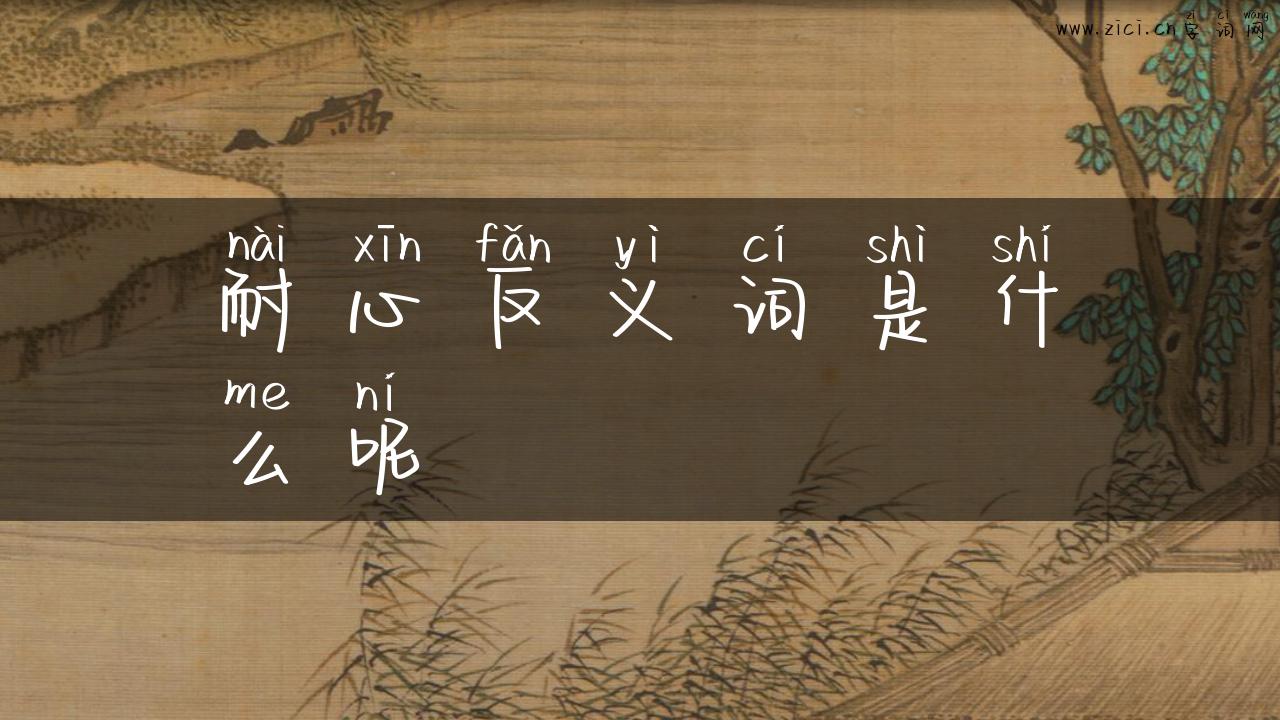 zì cí wǎng
www.zici.cn字词网
nài xīn fǎn yì cí shì shí
耐心反义词是什
me ní
么呢